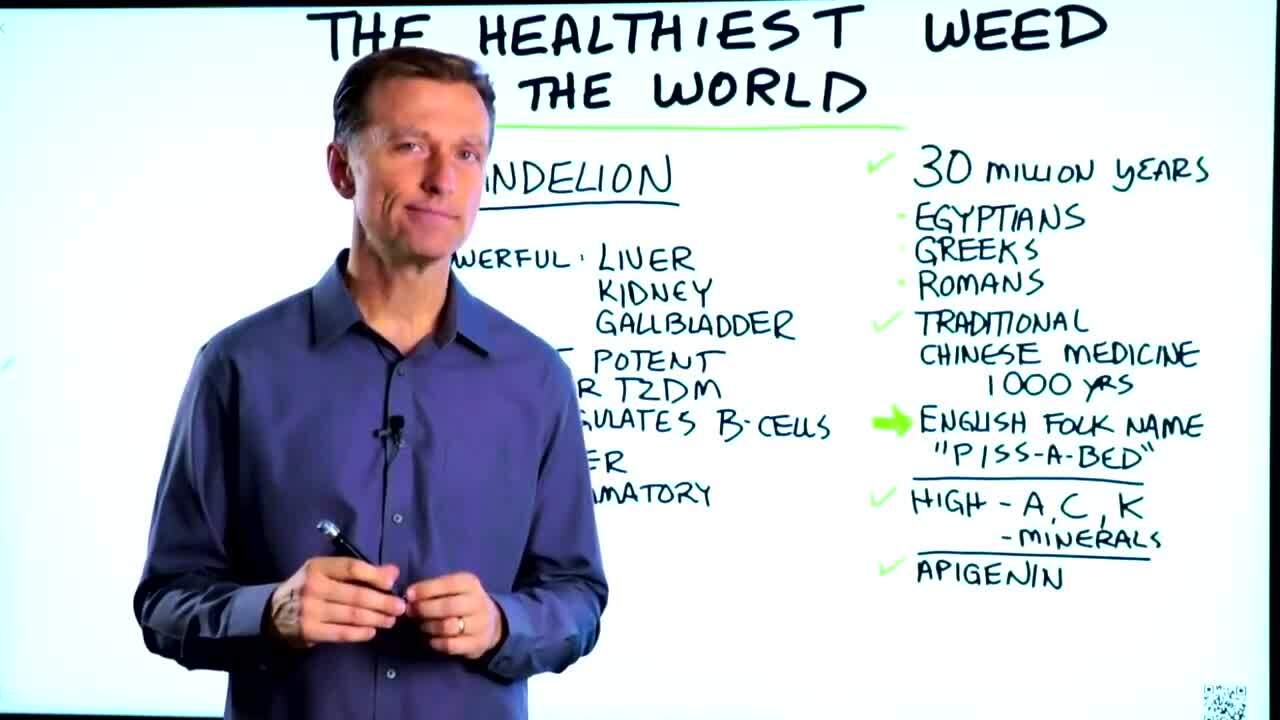 THE HEALTHIEST WEED
THE WORLD
NDELION
WERFUL: LIVER
KIDNEY
GALLBLADDER
POTENT
R T2DM
GULATES B-CELLS
ER
MATORY
30 MILLION YEARS
EGYPTIANS
GREEKS
ROMANS
TRADITIONAL
CHINESE MEDICINE
1000 YRS
ENGLISH FOLK NAME
"PISS-A-BED"
HIGH - A, C, K
- MINERALS
APIGENIN